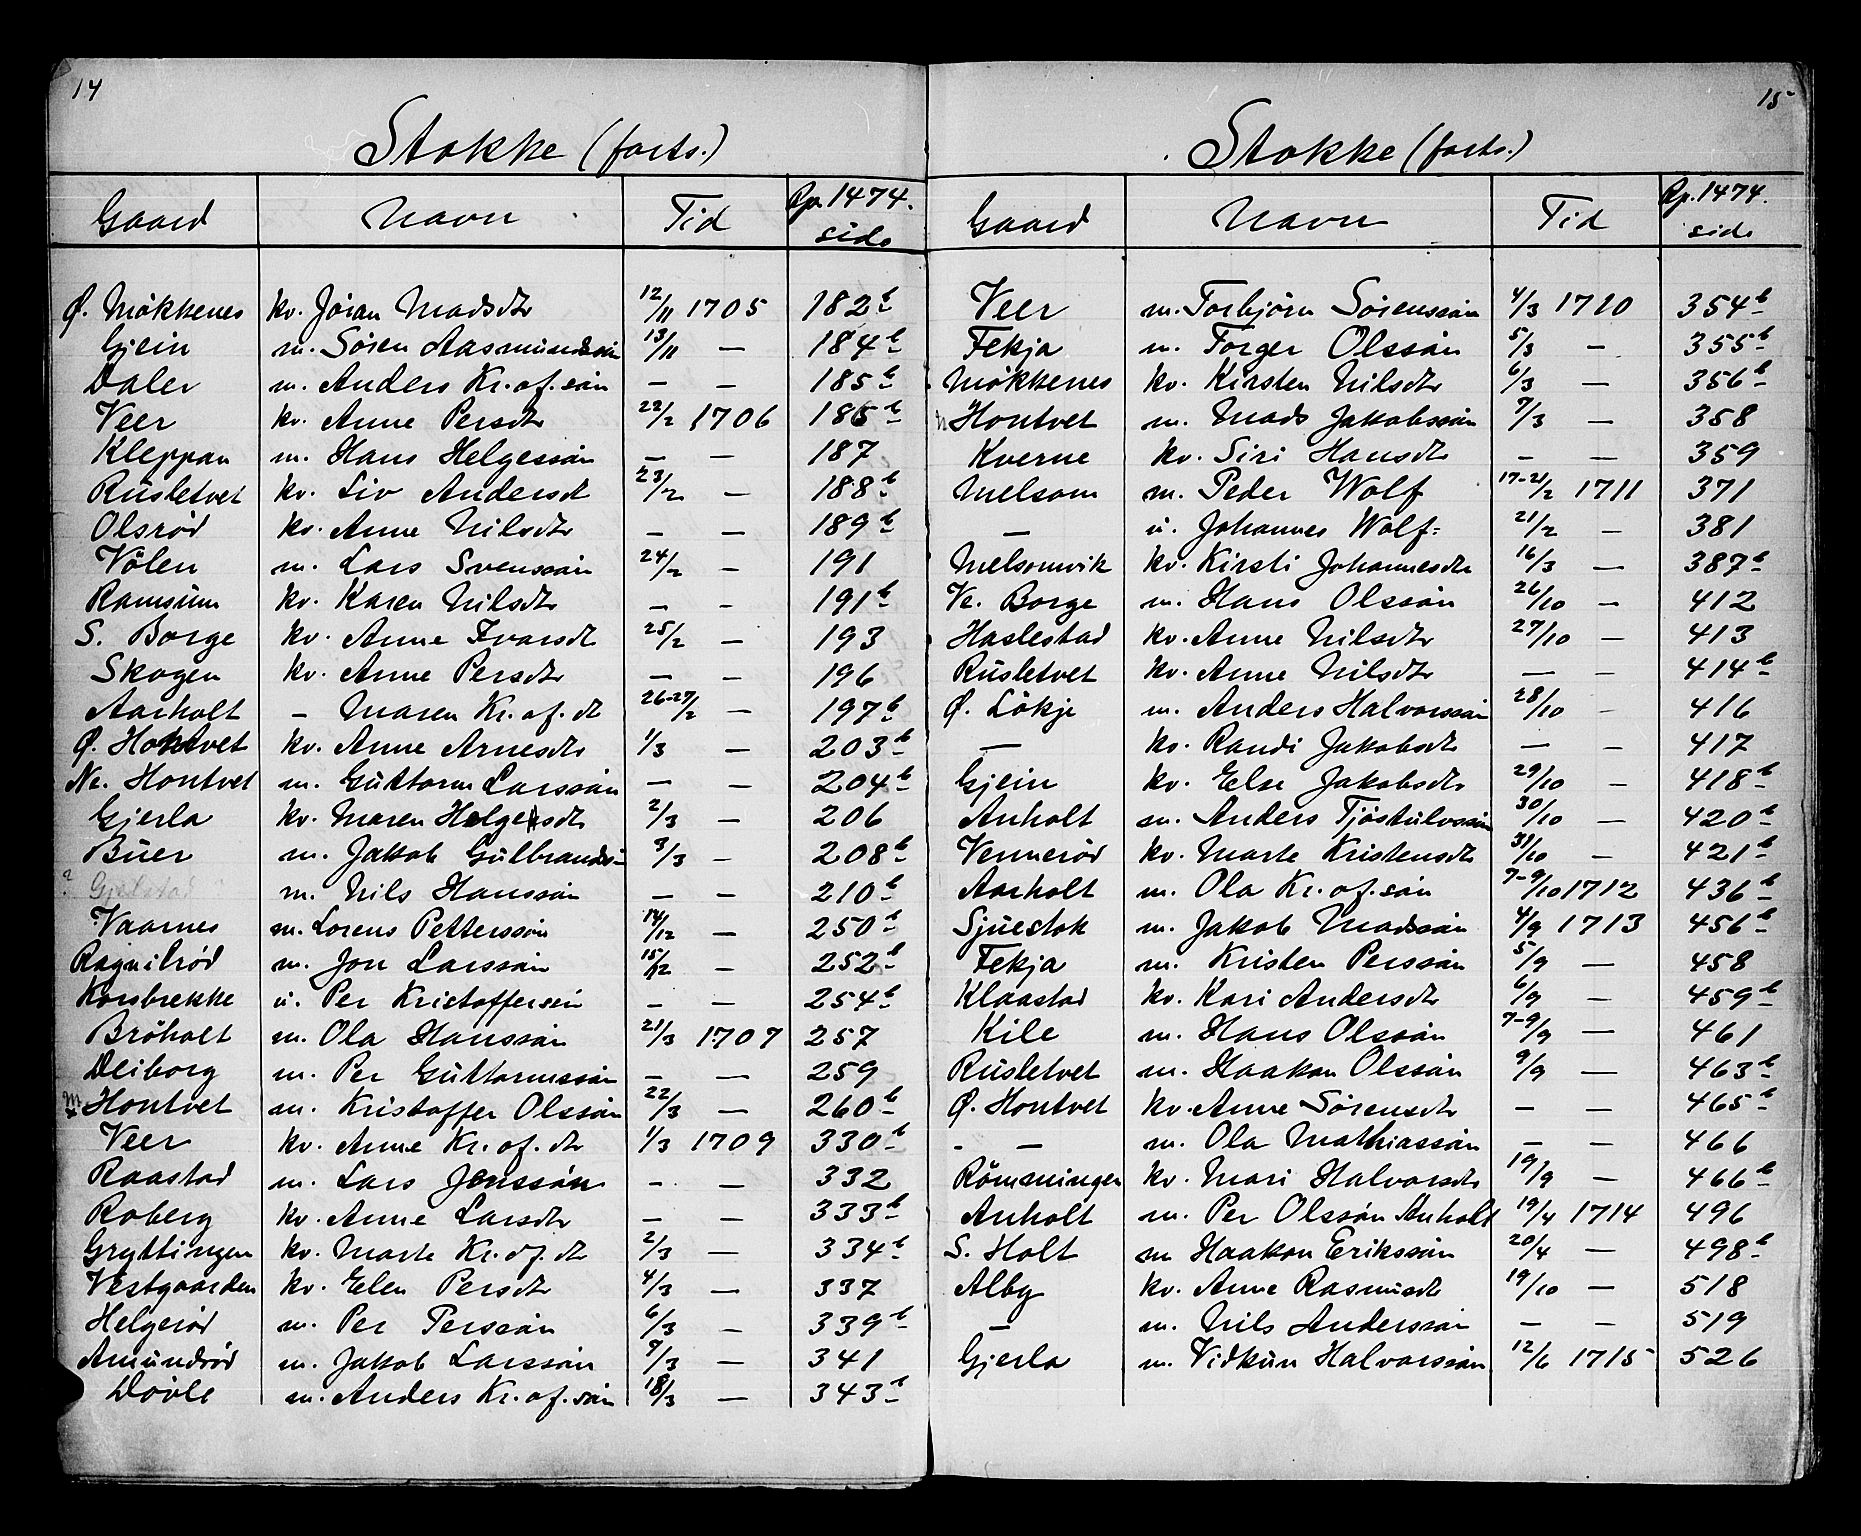 14
Stokke (forts.)
Gaard Navn Tid Rp. 1474. side
Ø. Mökkenes kv. Jöran Madsdtr 12/11 1705 182b
Gjein m. Sören Aasmundssön 13/11 — 184b
Daler m. Anders Kr.of.sön — — 185b
Veer kv. Anne Persdtr 22/2 1706 186b
Kleppan m. Hans Helgessön — — 187
Rusletvet kv. Liv Andersdt 23/2 — 188b
Olsrød kv. Anne Nilsdtr — — 189b
Völen m. Lars Svenssön 24/2 — 191
Ramsum kv. Karen Nilsdtr — — 191b
S. Borge kv. Anne Ivarsdt 25/2 — 193
Skogen kv. Anne Persdtr — — 196
Aarholt – Maren Kr.of.dt 26-27/2 — 197b
Ø. Hontvet kv. Anne Arnesdtr 1/3 — 203b
Ne. Hontvet m. Guttorm Larssön — — 204b
Gjerla kv. Maren Helgesdtr 2/3 — 206
Buer m. Jakob Gulbrands- 3/3 — 208b
? Gjelstad m. Nils Hanssön — — 210b
Vaarnes m. Lorens Petterssön 14/12 — 250b
Ragnilrød m. Jon Larssön 15/12 — 252b
Korsbrekke u. Per Kristoffersön — — 254b
Bröholt m. Ola Hanssön 21/3 1707 257
Deiborg m. Per Guttormssön — — 259
M. Hontvet m. Kristoffer Olssön 22/3 — 260b
Veer kv. Anne Kr.of.dtr 1/3 1709 330b
Raastad m. Lars Jonssön - - 332
Roberg kv. Anne Larsdtr — — 333b
Gryttingen kv. Marte Kr.of.dt 2/3 — 334b
Vestgaarden kv. Elen Persdtr 4/3 — 337
Helgerød m. Per Perssön 6/3 — 339b
Amundrød m. Jakob Larssön 9/3 — 341
Dövle m. Anders Kr.of.sön 18/3 — 343b
15
Stokke (forts.)
Gaard Navn Tid Rp. 1474. side
Veer m. Torbjörn Sörenssön 4/3 1710 354b
Fekja m. Torger Olssön 5/3 — 355b
Mökkenes kv. Kirsten Nilsdtr 6/3 — 356b
Hontvet m. Mads Jakobssön 7/3 — 358
Kverne kv. Siri Hansdtr — — 359
Melsom m. Peder Wolf 17-21/2 1711 371
— u. Johannes Wolf- 21/2 — 381
Melsomvik kv. Kirsti Johannesdtr 16/3 — 387b
Ve. Borge m. Hans Olssön 26/10 — 412
Haslestad kv. Anne Nilsdtr 27/10 — 413
Rusletvet kv. Anne Nilsdtr — — 414b
Ø. Lökje m. Anders Halvorssön 28/10 - 416
— kv. Randi Jakobsdtr — — 417
Gjein kv. Else Jakobsdtr 29/10 — 418b
Anholt m. Anders Tjöstulvssön 30/10 — 420b
Vennerød kv. Marte Kristensdtr 31/10 — 421b
Aarholt m. Ola Kr.of.sön 7-9/10 1712 436b
Sjuestok m. Jakob Madssön 4/9 1713 456b
Fekja m. Kristen Perssön 5/9 — 458
Klaastad kv. Kari Andersdtr 6/9 — 459b
Kile m. Hans Olssön 7-9/9 — 461
Rusletvet m. Haakon Olssön 9/9 — 463b
Ø. Hontvet kv. Anne Sörensdtr — — 465b
- — m. Ola Mathiassön — — 466
Römmingen kv. Mari Halvorsdtr 19/9 — 466b
Anholt m. Per Olssön Anholt 19/4 1714 496
S. Holt m Haakon Erikssön 20/4 — 498b
Alby kv. Anne Rasmusdt 19/10 — 518
— m. Nils Anderssön — — 519
Gjerla m. Vidkun Halvorssön 12/6 1715 526